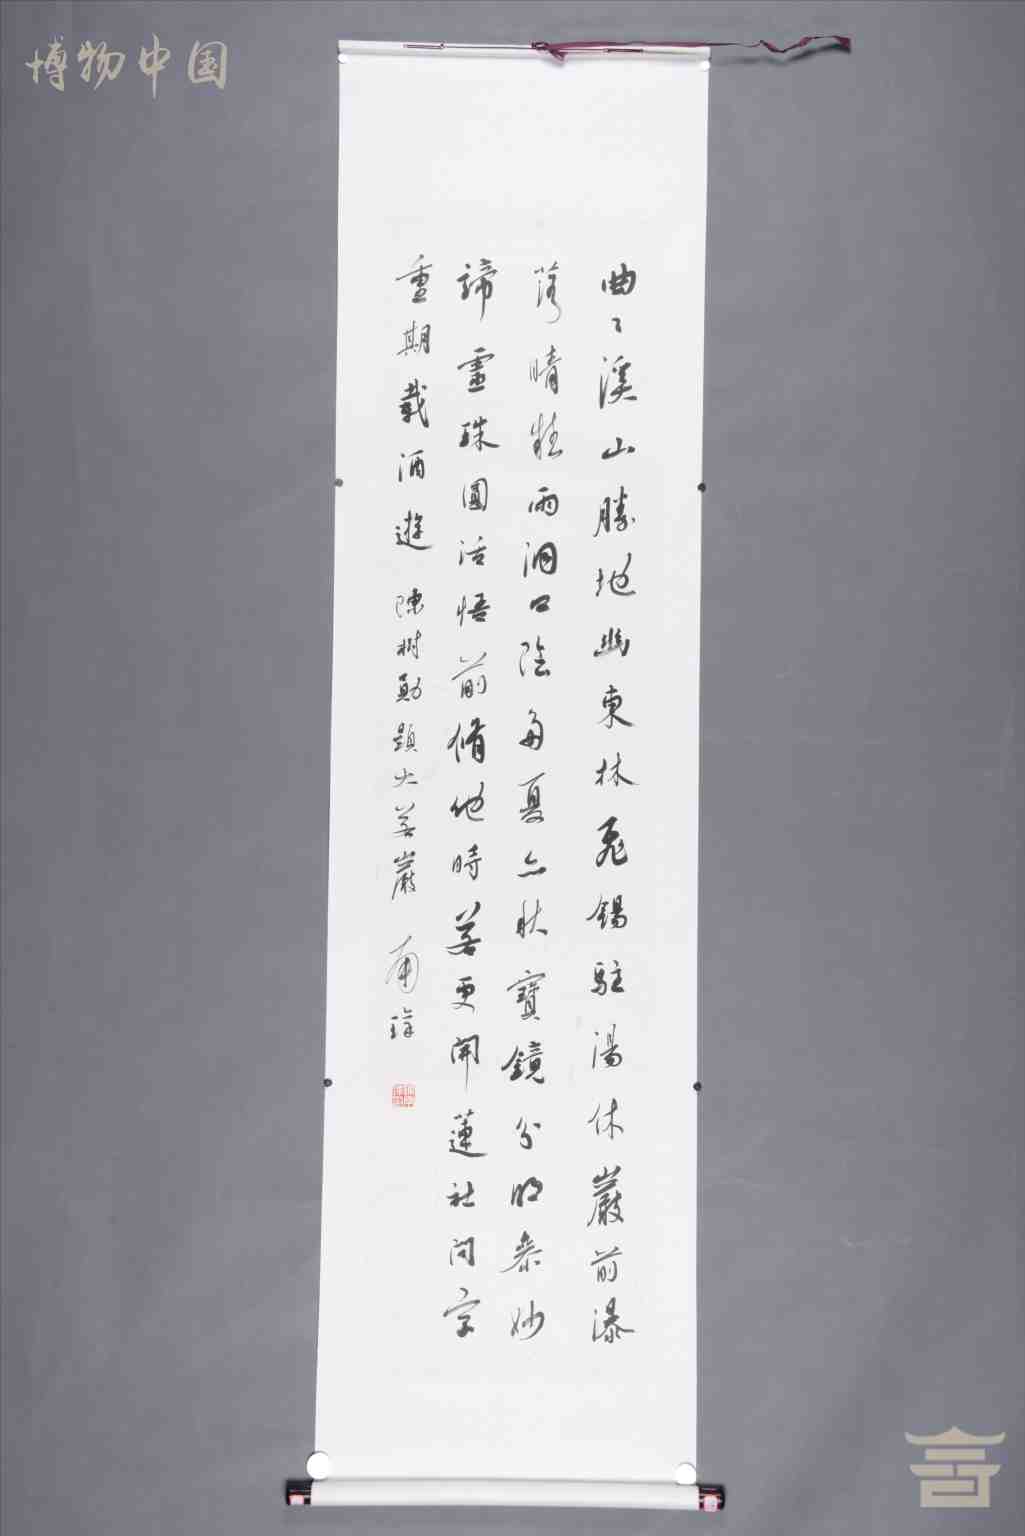 博物中国
曲々溪山勝地幽東林飛錫駐湯休巖前瀑
落晴難雨洞口陰多夏亦秋寶鏡分明參妙
諦靈珠圓活悟前脩他時若更開蓮社問字
重期載酒遊 陳樹勛題大若巖